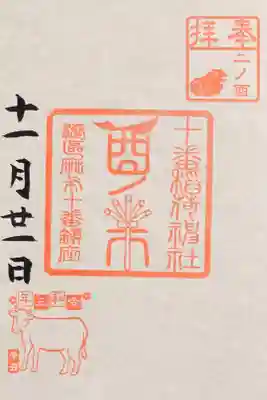 奉拝
二ノ酉
十番稲荷神社
酉ノ市
港區麻布十番鎮座
十一月廿一日
令和三年
辛丑